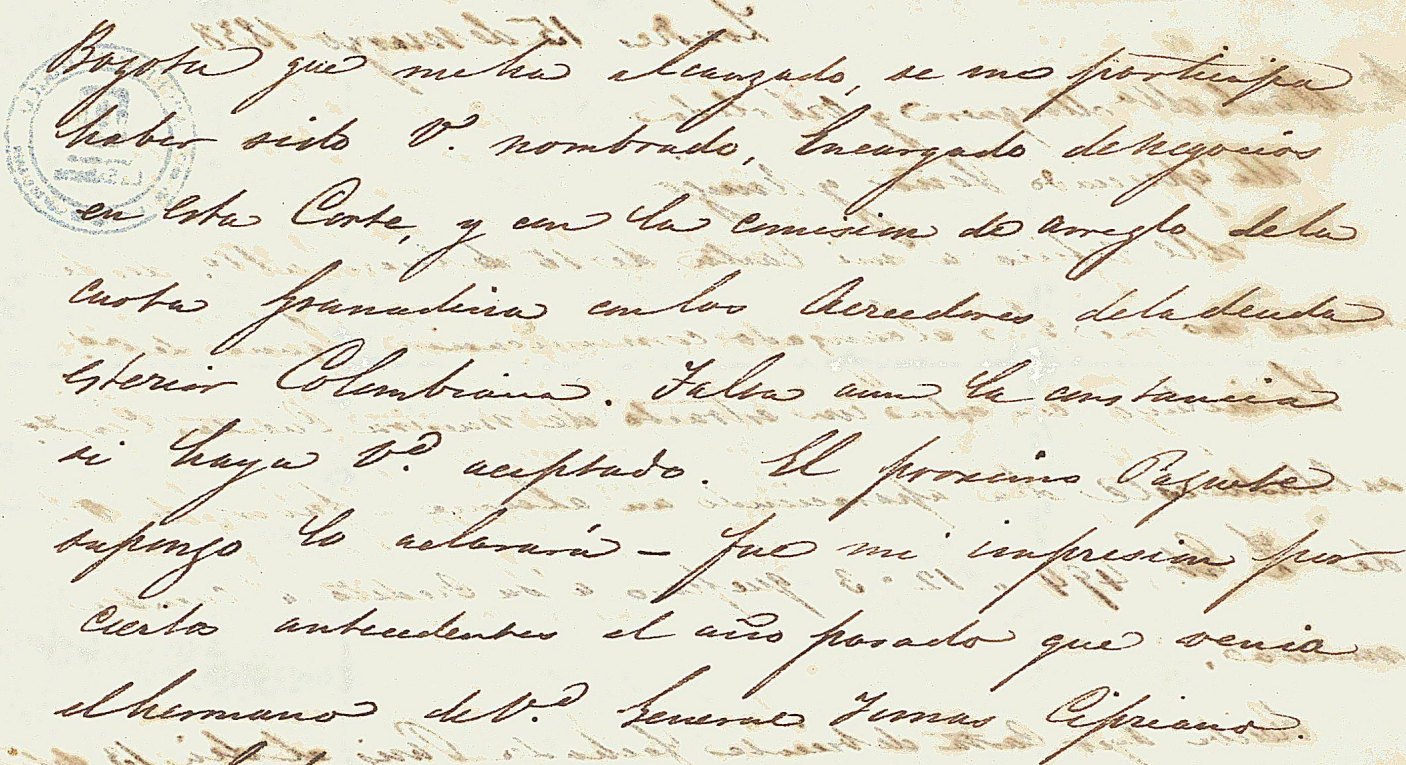 Bogota que me ha alcanzado, se me participa
haber sido V.d nombrado, Encargado de Negocios
en esta Corte, y con la comision de arreglo de la
cuota Granadina con los Acreedores de la deuda
esterior Colombiana. Falta aun la constancia
si haya V.d aceptado. El proximo Paquete
supongo lo aclarará – fue mi impresion por
ciertos antecedentes el año pasado que venia
el hermano de V.d General Tomas Cipriano.